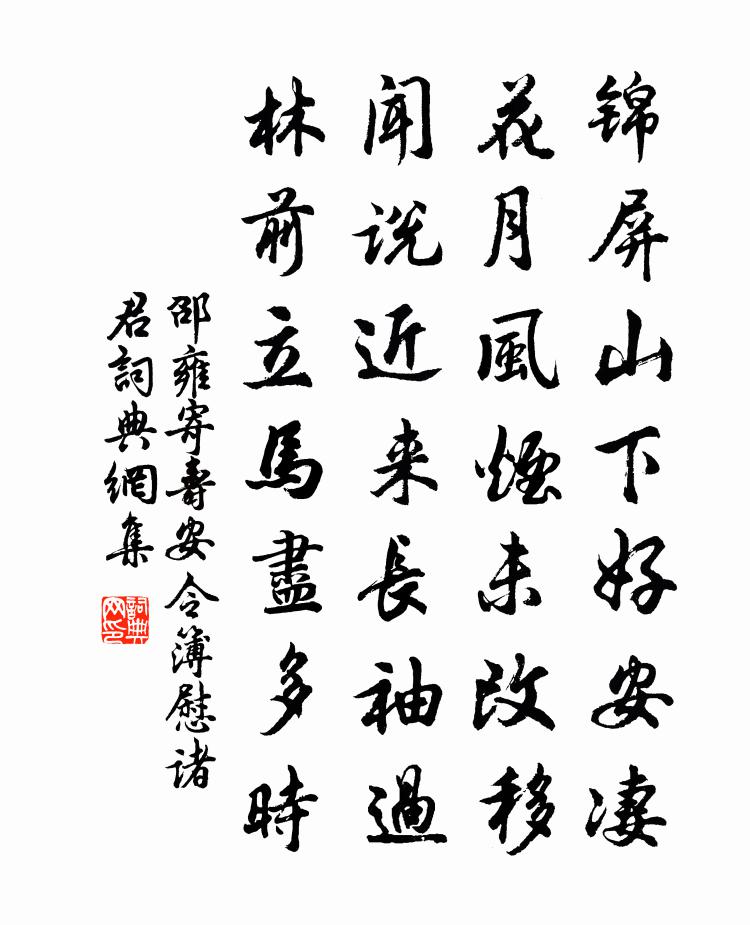 锦屏山下好安凄
花月風煙未改移
聞说近来長袖過
林前立馬盡多時
邵雍寄壽安令簿慰诸
君詞典網集
詞典网印